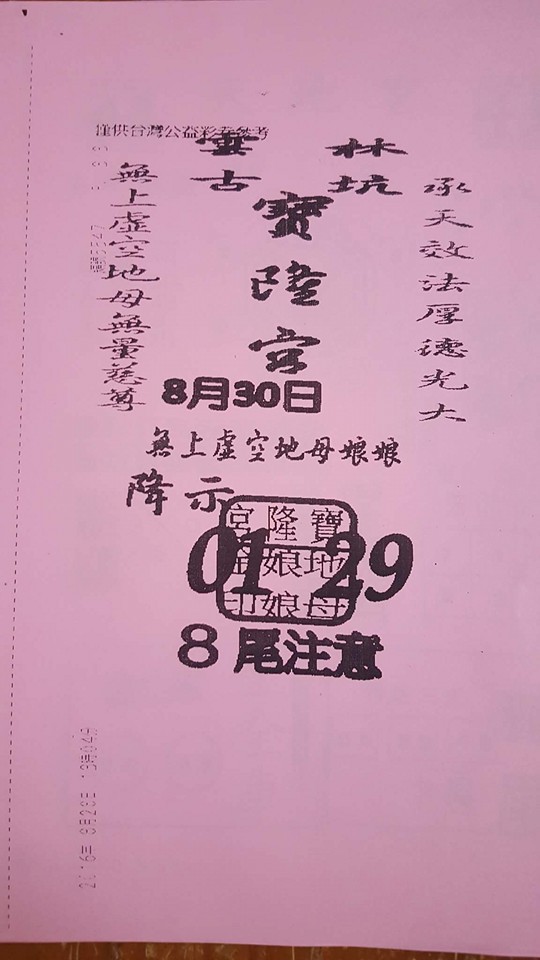 僅供台灣公益彩券參考
雲林
古坑
寶隆宮
承天效法厚德光大
無上虛空地母無量慈尊
8月30日
無上虛空地母娘娘
降示
寶隆宮
地娘
母娘印
01 29
8尾注意